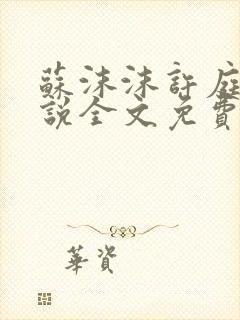 蘇沫沫許庭
說全文免費
華資